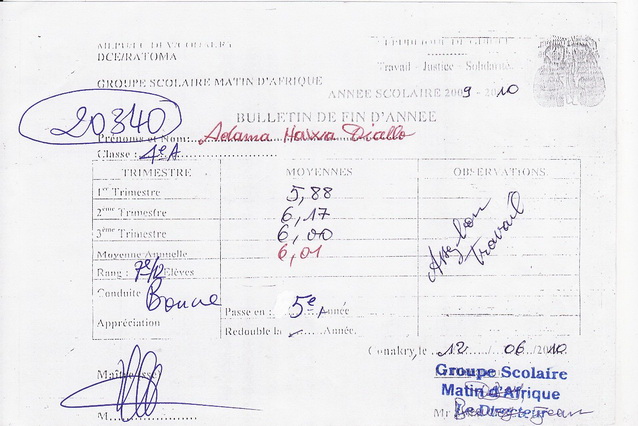 DCE/RATOMA
Travail - Justice - Solidarité
GROUPE SCOLAIRE MATIN D'AFRIQUE
ANNEE SCOLAIRE 2009 - 2010
20340
BULLETIN DE FIN D'ANNEE
Prénoms et Nom: Adama Hawa Diallo
Classe : 4e A
TRIMESTRE MOYENNES OBSERVATIONS
1er Trimestre 5,88
2ème Trimestre 6,17
3ème Trimestre 6,00
Moyenne Annuelle 6,01
Assez bon
Travail
Rang : 7e/ Elèves
Conduite Bonne
Passe en : 5e Année
Appréciation
Redouble la Année.
Conakry, le 12 / 06 / 2010
Maîtresse
Groupe Scolaire
Matin d'Afrique
Le Directeur
M
Mr